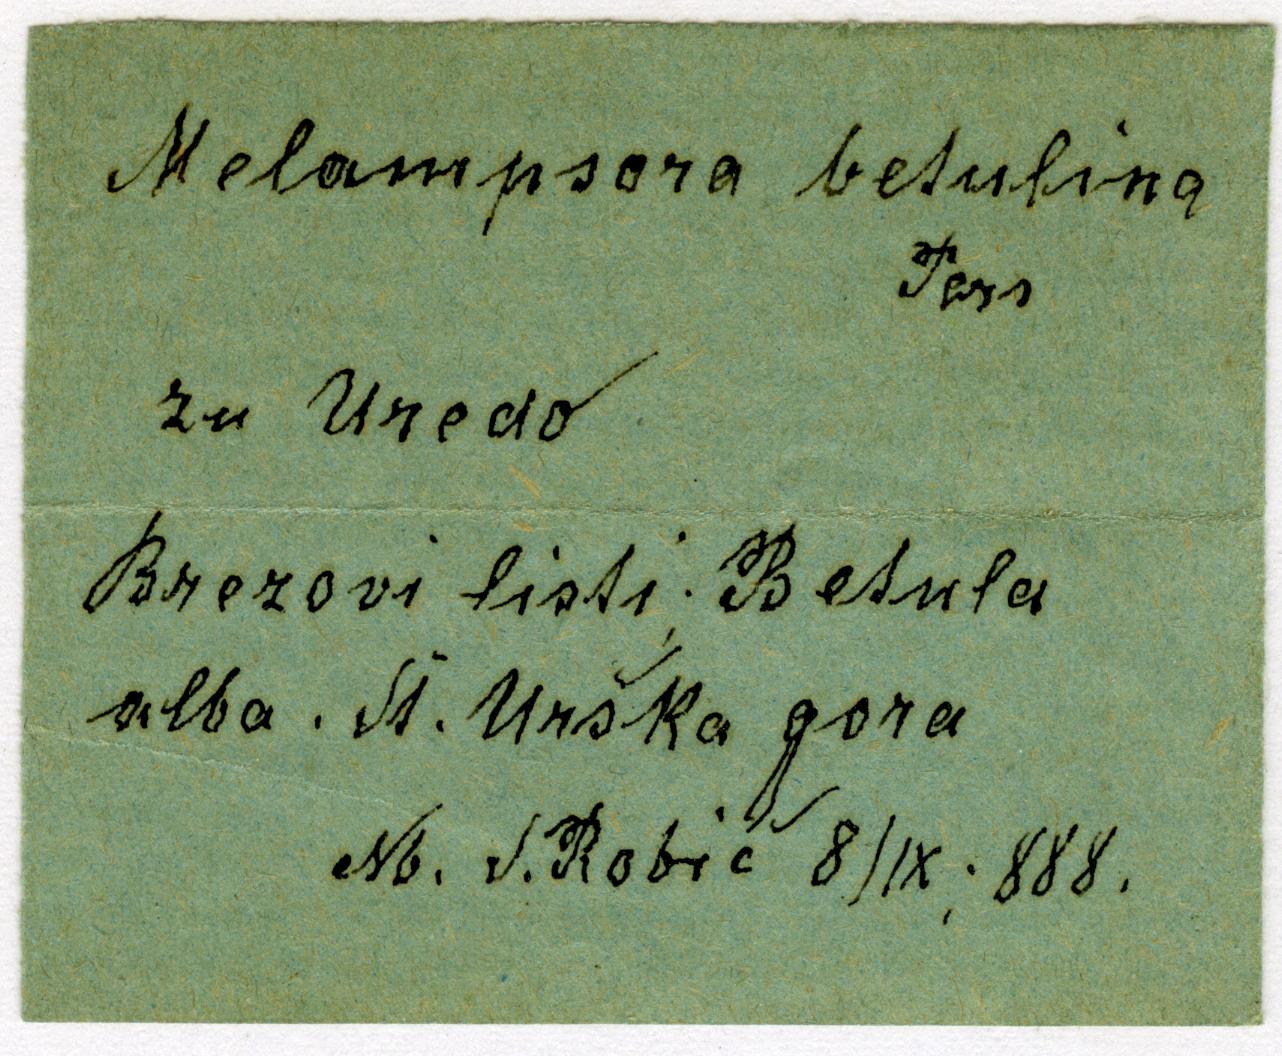 Melampsora betulina
Pers
zu Uredo
Brezovi listi; Betula
alba. St. Urška gora
Nb. S. Robič 8/IX; 888.